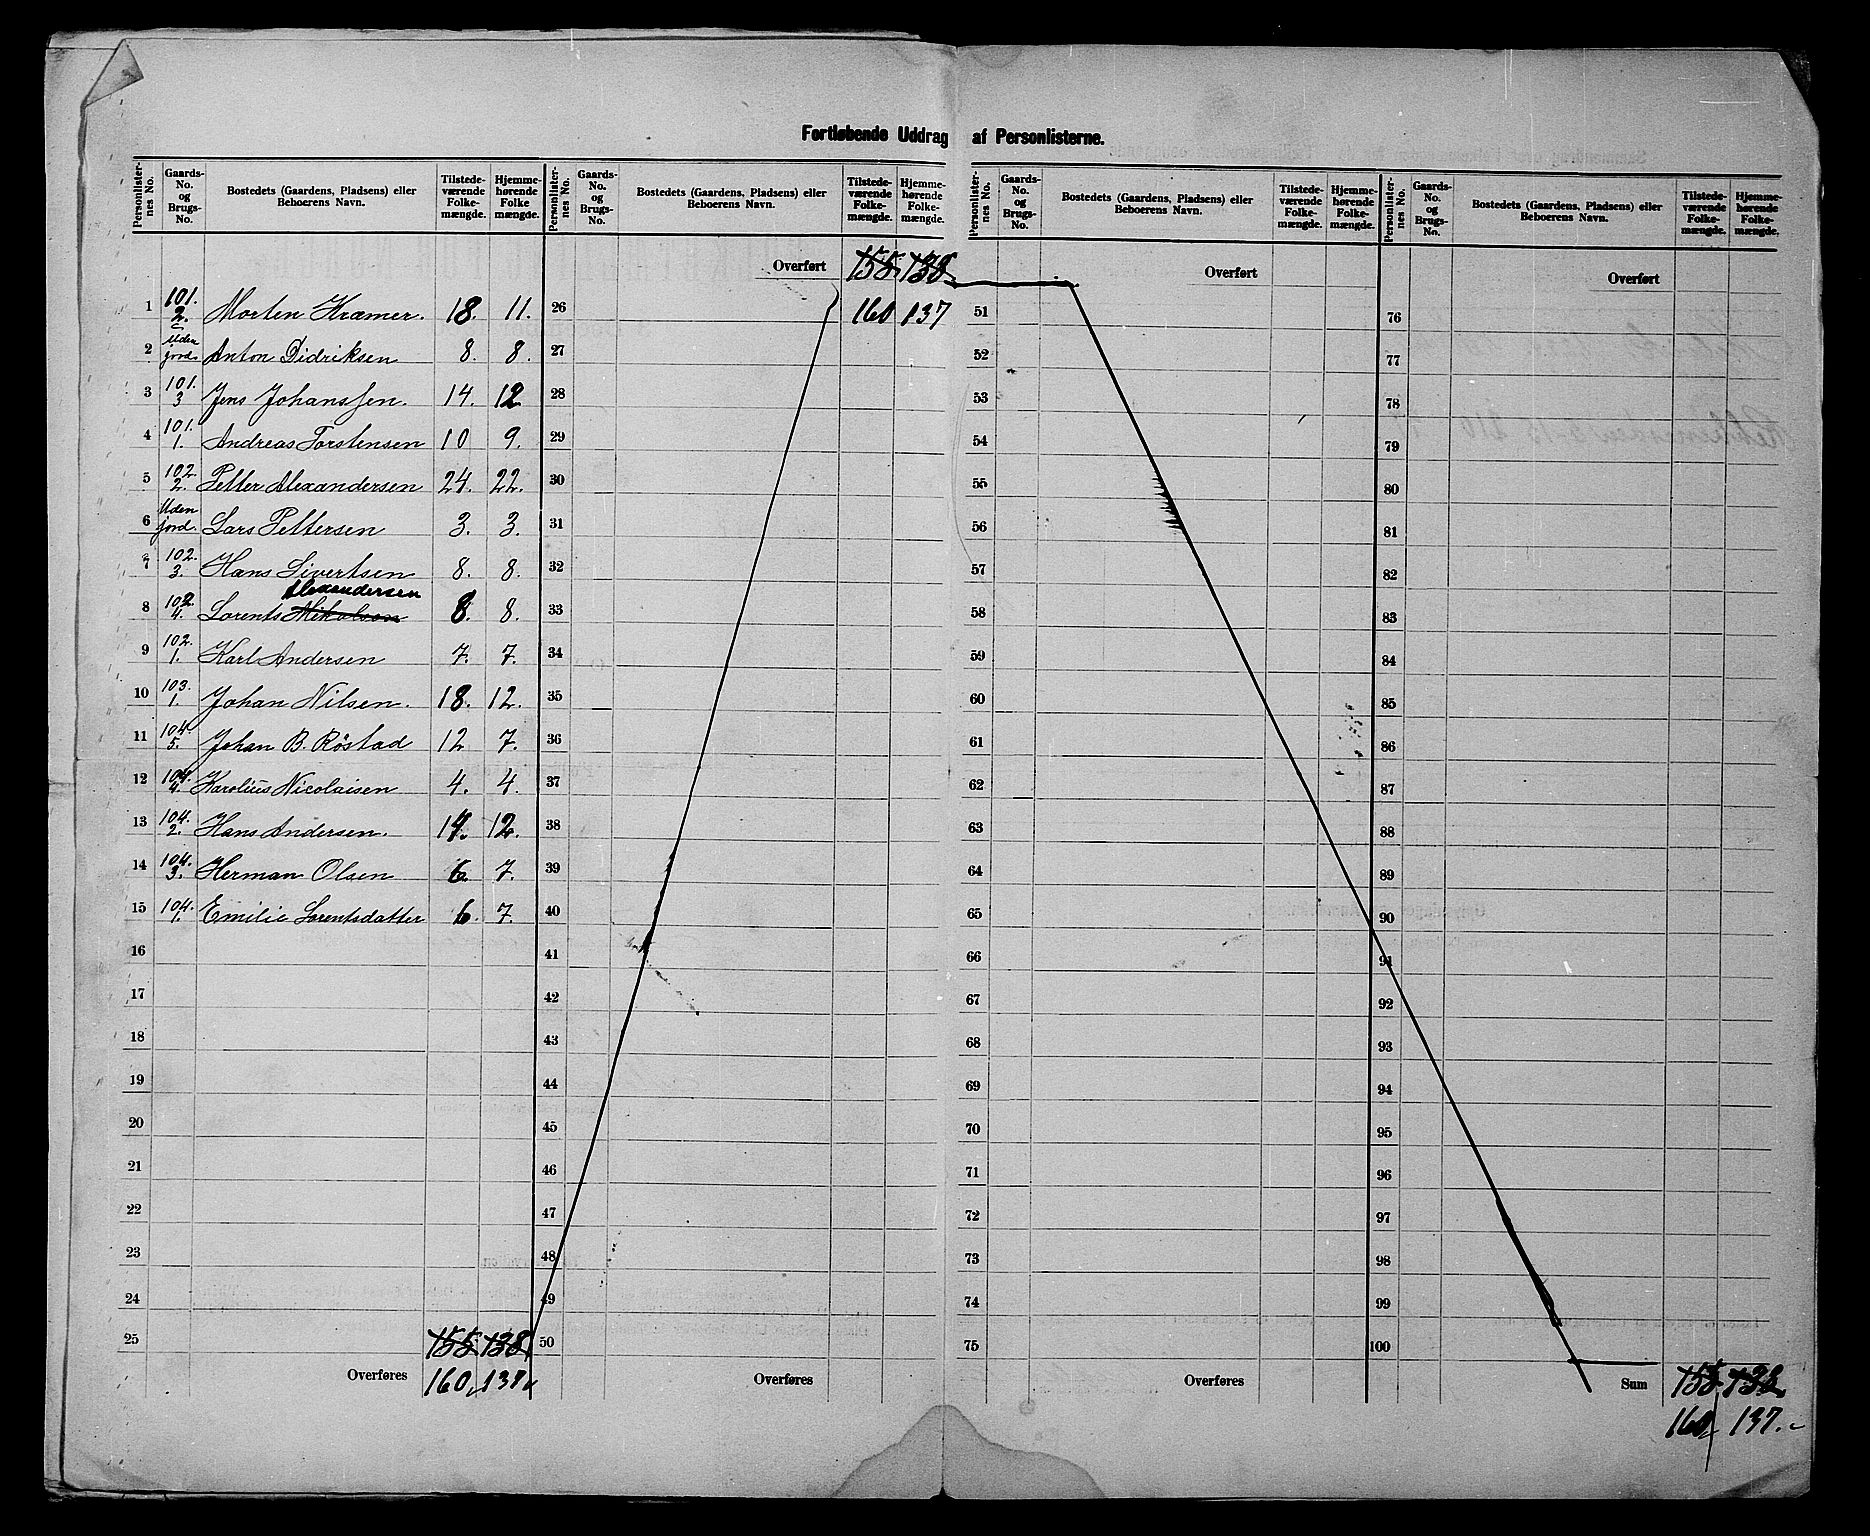 Fortløbende Uddrag af Personlisterne.
Personlister-nes No. Gaards-No. og Brugs-No. Bostedets (Gaardens, Pladsens) eller Beboerens Navn. Tilstede-værende Folke-mængde. Hjemme-hørende Folke mængde.
1 101. 2. c Morten Kramer. 18. 11.
2 Uden jord. Anton Didriksen 8. 8.
3 101. 3 Jens Johanssen. 14. 12
4 101. 1. Andreas Torstensen 10 9.
5 102. 2. Petter Alexandersen 24. 22.
6 Uden jord. Lars Pettersen 3. 3.
7 102. 3. Hans Sivertsen 8. 8.
Alexandersen
8 102. 4. Lorents Mikalsen 8. 8.
9 102. 1. Karl Andersen 7. 7.
10 103. 1. Johan Nilsen. 18. 12.
11 104. 5. Johan B. Røstad 12 7.
12 104. 4. Karolius Nicolaisen 4. 4.
13 104. 2. Hans Andersen. 14. 12.
14 104. 3. Herman Olsen 6. 7.
15 104. 1. Emilie Lorentsdatter 6. 7.
16
17
18
19
20
21
22
23
24
25 155 138
Overføres 160 137
Personlister-nes No. Gaards-No. og Brugs-No. Bostedets (Gaardens, Pladsens) eller Beboerens Navn. Tilstede-værende Folke-mængde. Hjemme-hørende Folke-mængde.
Overført 155 138
26 160 137
27
28
29
30
31
32
33
34
35
36
37
38
39
40
41
42
43
44
45
46
47
48
49
50
Overføres
Personlister-nes No. Gaards-No. og Brugs-No. Bostedets (Gaardens, Pladsens) eller Beboerens Navn. Tilstede-værende Folke-mængde. Hjemme-hørende Folke-mængde.
Overført
51
52
53
54
55
56
57
58
59
60
61
62
63
64
65
66
67
68
69
70
71
72
73
74
75
Overføres
Personlister-nes No. Gaards-No. og Brugs-No. Bostedets (Gaardens, Pladsens) eller Beboerens Navn. Tilstede-værende Folke-mængde. Hjemme-hørende Folke-mængde.
Overført
76
77
78
79
80
81
82
83
84
85
86
87
88
89
90
91
92
93
94
95
96
97
98
99
100
Sum 155 138
160 137.